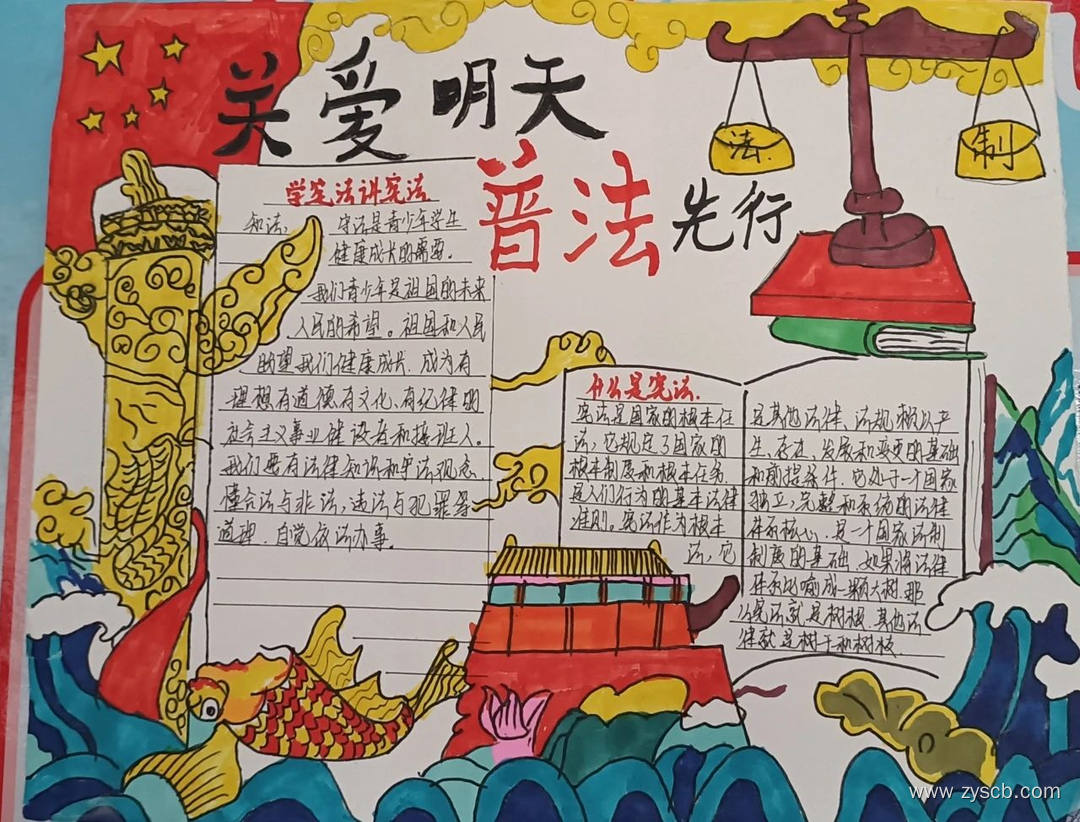 关爱明天
普法先行
法
制
学宪法讲宪法
知法、守法是青少年学生
健康成长的需要。
我们青少年是祖国的未来
人民的希望。祖国和人民
盼望我们健康成长、成为有
理想有道德有文化、有纪律的
社会主义事业建设者和接班人。
我们要有法律知识和守法观念
懂合法与非法,违法与犯罪等
道理,自觉依法办事。
什么是宪法
宪法是国家的根本任
法,它规定了国家的
根本制度和根本任务
是人们行为的基本法律
准则。宪法作为根本
法,它
是其他法律、法规赖以产
生、存在、发展和变更的基础
和前提条件,它处于一个国家
独立,完整和系统的法律
体系核心,是一个国家法制
制度的基础,如果将法律
体系比喻成一颗大树,那
么宪法就是树根,其他法
律就是树干和树枝
www.zyscb.com